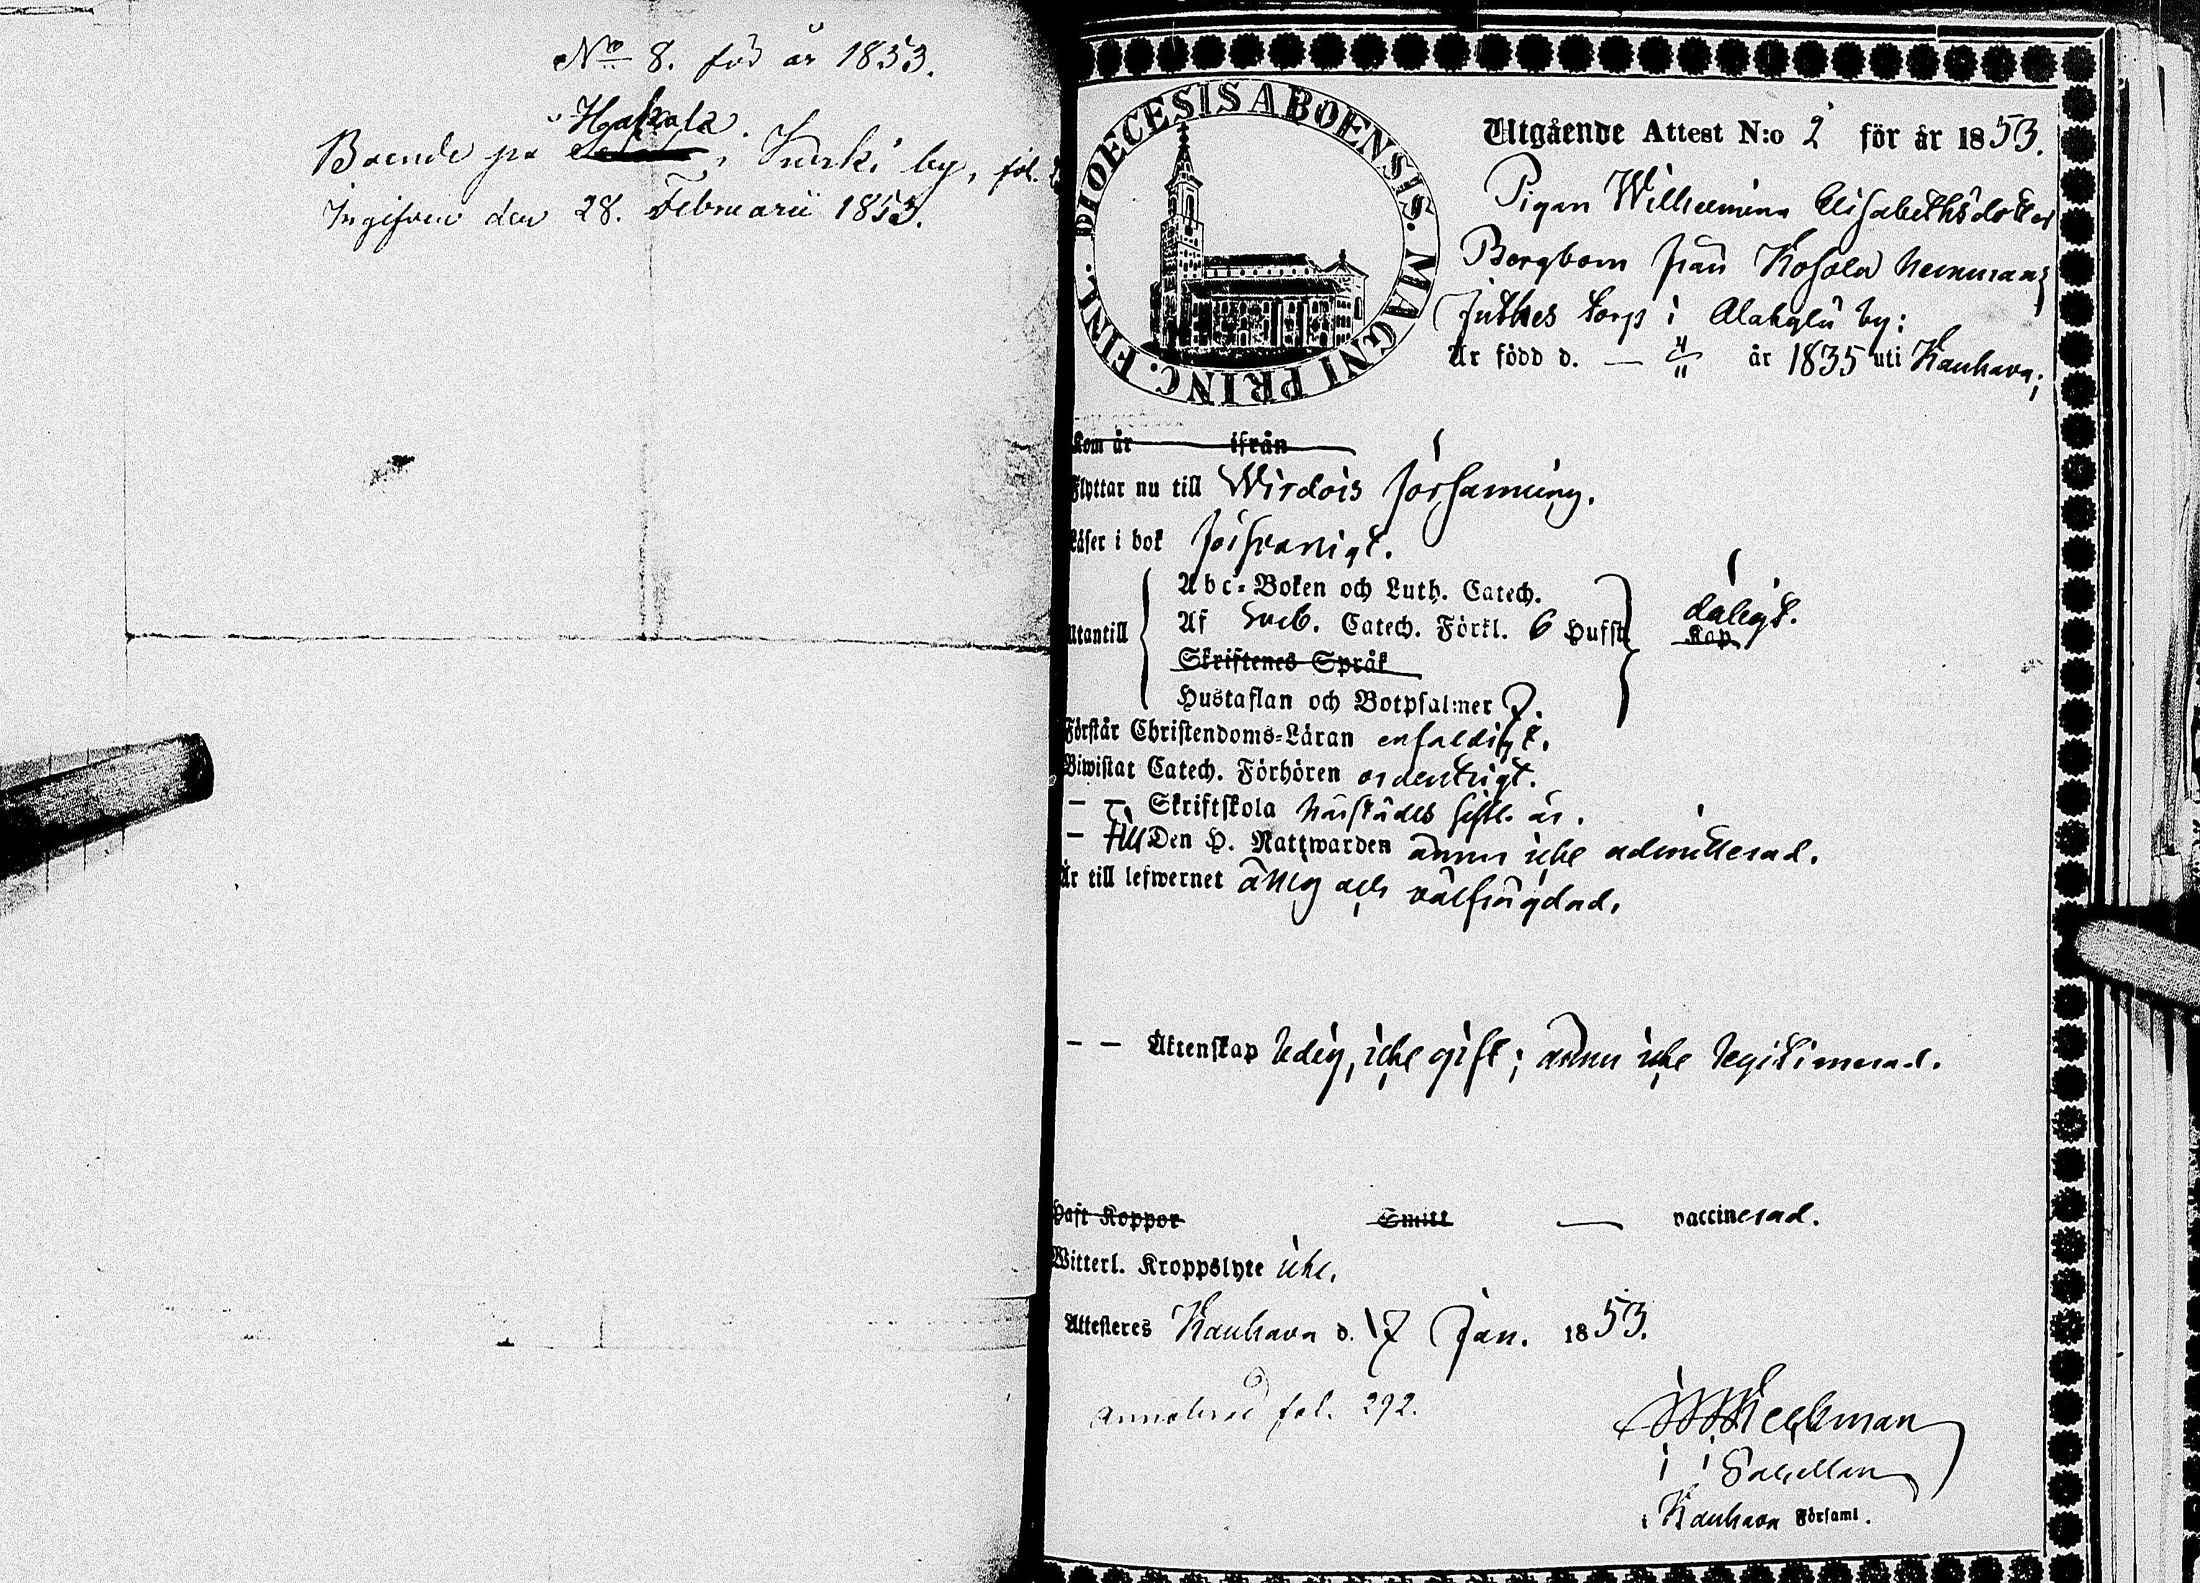 No 8. för år 1853.
Hgakala.
Boende på i Kurki by, fol.
Ingifven den 28. Februarii 1853.
DIOECESIS ABOENSIS. MAGNI PRINC. FINL.
Utgående Attest N:o 2 för år 1853.
Pigan Wilhelmina Elisabethsdotter
Bergbom från Kosola hemmans
torp i Alakylä by:
Är född d. — 4/11 år 1835 uti Kauhava;
Kom år ifrån
Flyttar nu till Wirdois församling.
Läser i bok försvarligt.
Utantill
Abc-Boken och Luth. Catech.
Af Sveb. Catech. Förkl. 6 Hufst.
dåligt.
Kap.
Skriftenes Språk
Hustaflan och Botpsalmer 7.
Förstår Christendoms-Läran enfaldigt.
Biwistat Catech. Förhören ordentligt.
— — Skriftskola härstädes sistl. år.
— till Den H. Nattwarden ännu icke admitterad.
Är till lefwernet ärlig och välfrägdad.
— — Äktenskap ledig, icke gift; ännu icke legitimerad.
Haft Koppor Smitt — vaccinerad.
Witterl. Kroppslyte icke.
Attesteres Kauhava d. 17 Jan. 1853.
Annoterad fol. 292.
Kauhava Församl.